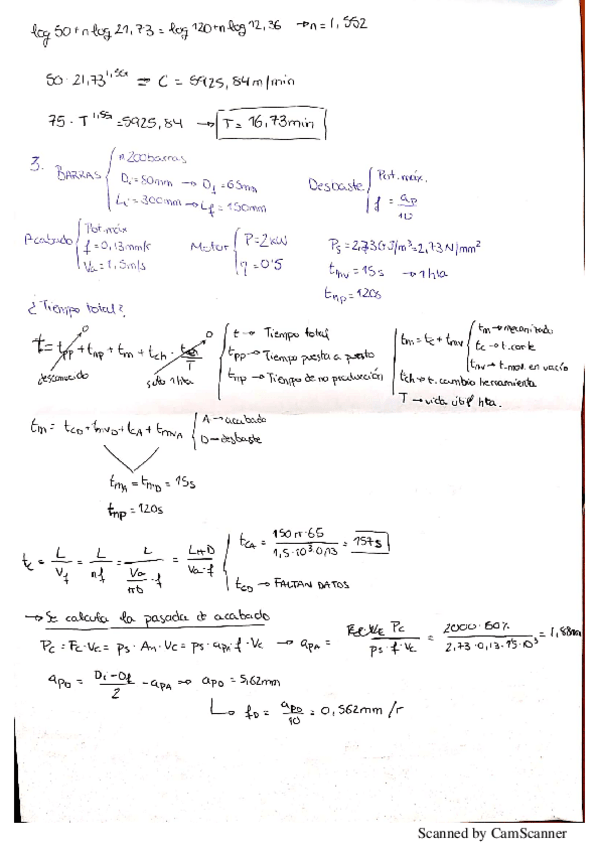 log 50 + n log 21,73 = log 120 + n log 12,36 → n = 1,552
50 · 21,73^1,552 ⇒ C = 5925,84 m/min
75 · T^1,552 = 5925,84 → T = 16,73 min
3. BARRAS { n200 barras
Di = 80mm → Df = 65mm
Li = 300mm → Lf = 150mm
Desbaste { Pot. máx.
f = ap/10
Acabado { Pot. máx
f = 0,13 mm/r
Va = 1,5 m/s
Motor { P = 2 kW
η = 0'5
Ps = 2,73 GJ/m³ = 2,73 N/mm²
tmv = 15s → 1 hta
tnp = 120s
¿Tiempo total?
t = tpp + tnp + tm + tch ·
desconocido
solo 1 hta
t → Tiempo total
tpp → Tiempo puesta a punto
tnp → Tiempo de no producción
tm = tc + tmv { tm → mecanizado
tc → t. corte
tmv → t. mov. en vacío
tch → t. cambio herramienta
T → vida útil hta.
tm = tcD + tmvD + tcA + tmvA { A → acabado
D → desbaste
= 15s
tnp = 120s
tc = L/Vf = L/nf = L/(Va/πD · f) = LπD/(Va·f)
tcA = 150·π·65/(1,5·10³·0,13) = 157s
tcD → FALTAN DATOS
→ Se calcula la pasada de acabado
Pc = Fc·Vc = ps·An·Vc = ps·ap·f·Vc → apA = Pc/(ps·f·Vc) = 2000·60%/(2,73·0,13·15·10³) = 1,88mm
apD = (Di-Df)/2 - apA ⇒ apD = 5,62mm
↳ fD = apD/10 = 0,562mm/r
Scanned by CamScanner